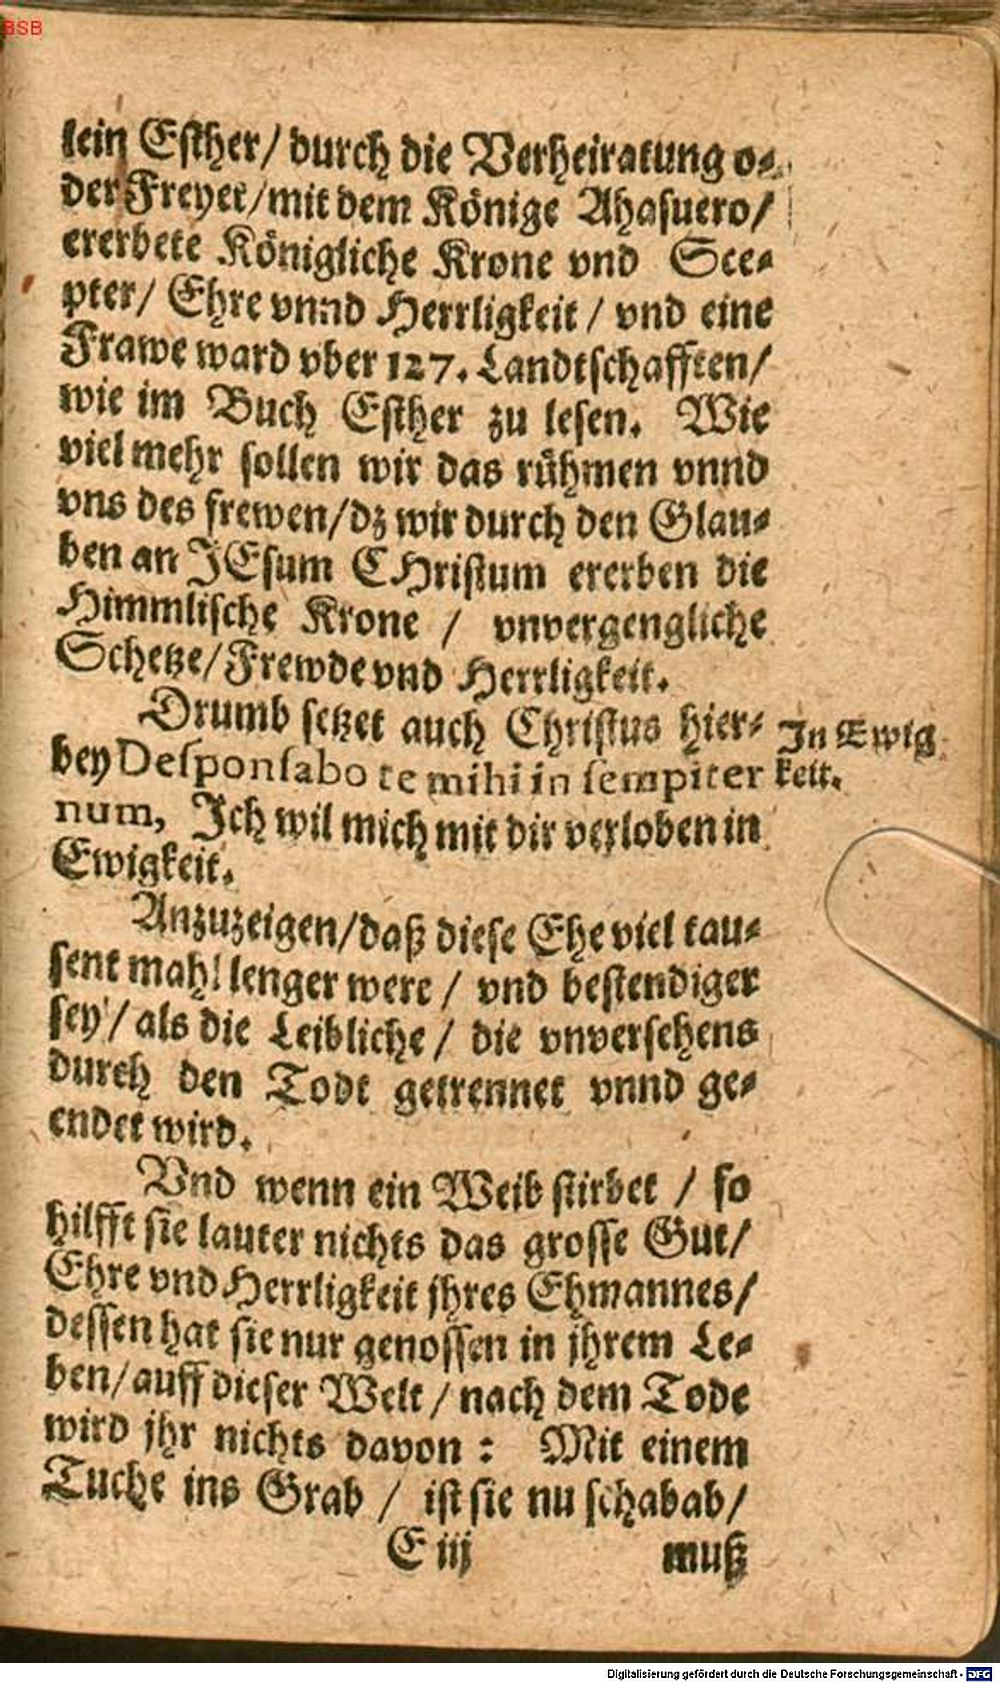 BSB
lein Esther/ durch die Verheiratung o⸗
der Freyet/mit dem Könige Ahasuero/
ererbete Königliche Krone vnd Sce⸗
pter/ Ehre vnnd Herrligkeit / vnd eine
Frawe ward vber 127. Landtschafften/
wie im Buch Esther zu lesen. Wie
viel mehr sollen wir das rühmen vnnd
vns des frewen/dz wir durch den Glau⸗
ben an JEsum CHristum ererben die
Himmlische Krone / vnvergengliche
Schetze/Frewde vnd Herrligkeit.
Drumb setzet auch Christus hier⸗
bey Desponsabo te mihi in sempiter
num, Ich wil mich mit dir verloben in
Ewigkeit.
In Ewig
keit.
Anzuzeigen/daß diese Ehe viel tau⸗
sent mahl lenger were / vnd bestendiger
sey / als die Leibliche / die vnversehens
durch den Todt getrennet vnnd ge⸗
endet wird.
Vnd wenn ein Weib stirbet / so
hilfft sie lauter nichts das grosse Gut/
Ehre vnd Herrligkeit jhres Ehmannes/
dessen hat sie nur genossen in jhrem Le⸗
ben/auff dieser Welt / nach dem Tode
wird jhr nichts davon : Mit einem
Tuche ins Grab / ist sie nu schabab/
E iij
muß
Digitalisierung gefördert durch die Deutsche Forschungsgemeinschaft - DFG